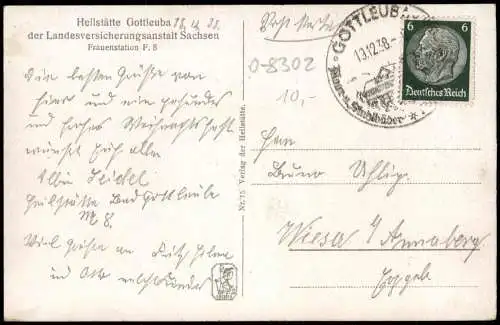 Heilstätte Gottleuba 18.12.38.
der Landesversicherungsanstalt Sachsen
Frauenstation F. 8
Die besten Grüße von
hier und ein gesundes
und frohes Weihnachtsfest
wünscht Euch allen
Seidel
Heilstätte Bad Gottleuba
F 8.
Viel Grüße an
und
Nr. 75 Verlag der Heilstätte.
Postkarte
O-8302
10,-
GOTTLEUBA
19.12.38
Moor- u. Stahlbäder
6
6
Deutsches Reich
Herrn
Bruno Uhlig.
Wiesa b/Annaberg
Erzgeb.